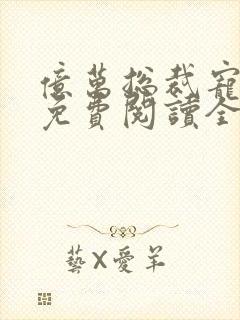 億萬總裁寵
免費閱讀全
藝X愛羊